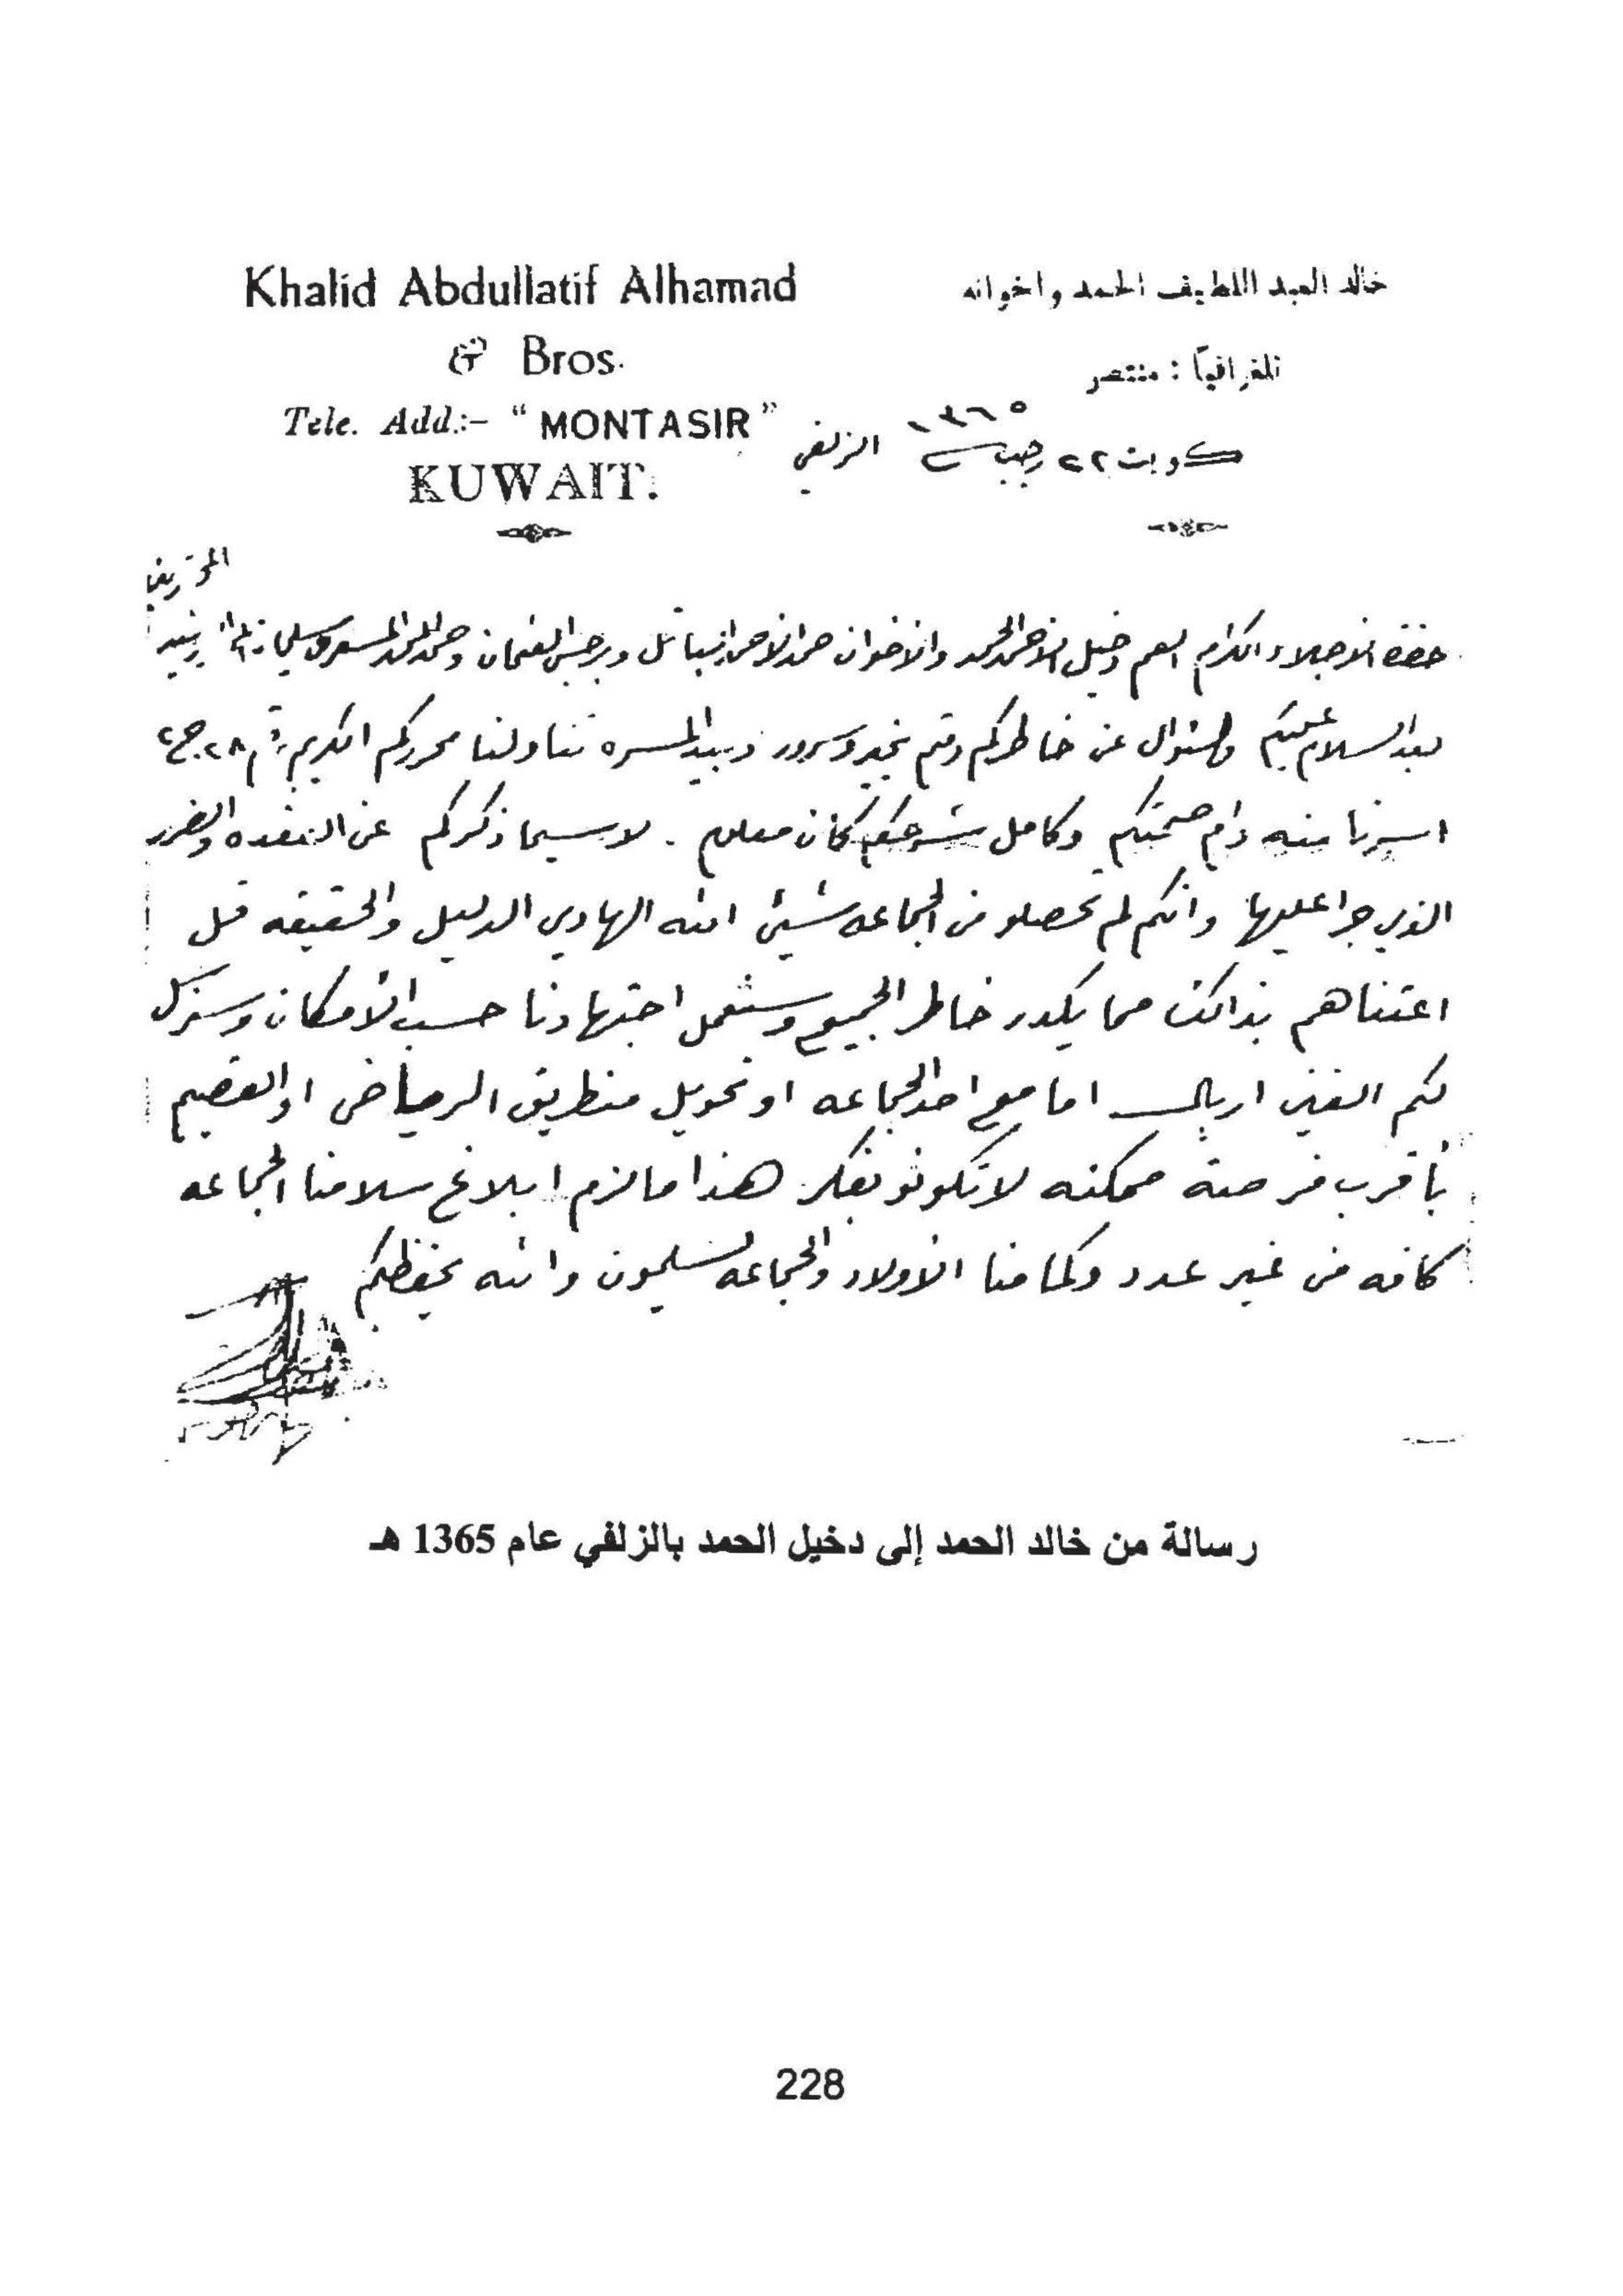 Khalid Abdullatif Alhamad
& Bros.
Tele. Add:- "MONTASIR"
KUWAIT.
خالد العبد اللطيف الحمد واخوانه
تلغرافياً : منتصر
كويت ٢٢ رجب سـ ١٣٦٥ الزلفي
المحترمين
حضرة الاجلاء الكرام العم دخيل الحمد والاخوان حمد وبرجس العثمان
بعد السلام عليكم والسئوال عن خاطركم دمتم بخير وسرور وبيد المسره تناولنا محرركم الكريم رقم ٢٨ ج٢
اسرنا منه دام صحتكم وكامل شرحكم كان معلوم . لاسيما ذكركم عن العقده والضرر
الذي جرا عليها وانكم لم تحصلو من الجماعه شيئ الله الهادي الدليل والحقيقه قل
اعتناهم بذالك مما يكدر خاطر الجميع وسنعمل اجتهادنا حسب الأمكان وسنرسل
لكم الفين اريال اما مع احد الجماعه او تحويل منطريق الرياض او القصيم
بأقرب فرصة ممكنه لا تكونو بفكر هذا مالزم ابلاغ سلامنا الجماعه
كافه من غير عدد وكما منا الاولاد والجماعه يسلمون والله يحفظكم
رسالة من خالد الحمد إلى دخيل الحمد بالزلفي عام 1365 هـ
228